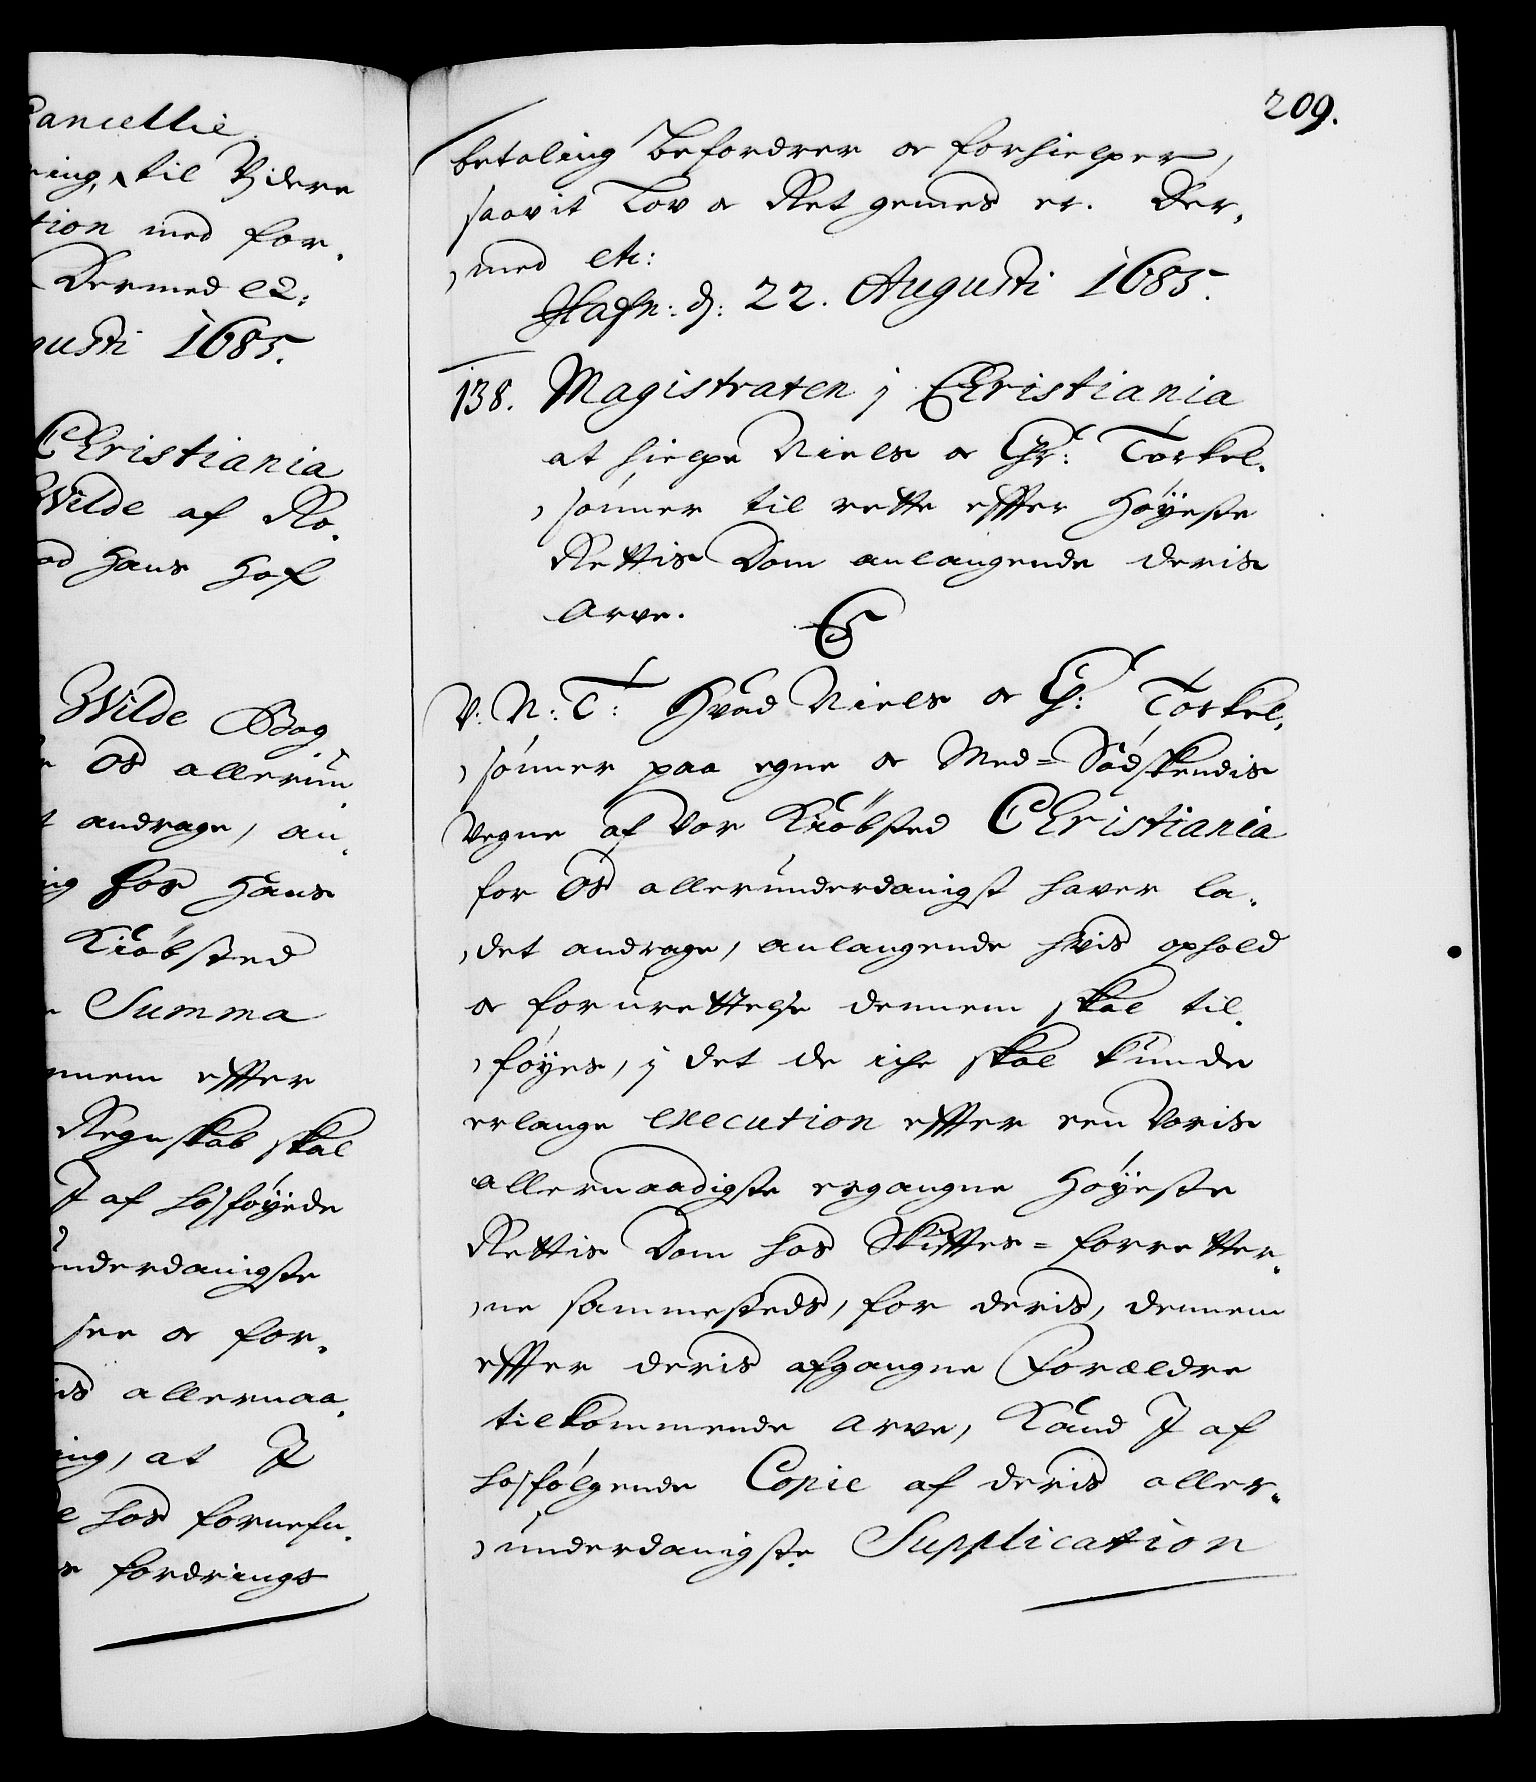 Cancellie.
ring, til Videre
tion med for-
Dermed etc:
gusti 1685.
Christiania
Wilde af Ro-
ad hans Hof
Wilde Bog
e os allerun-
t andrage, an-
ing for hans
Kiöbsted
e Summa
nnem effter
Regnskab skal
I af hosföyede
underdanigste
see oc for-
is allernaa-
ing, at I
e hos fornefn-
e fordrings
209.
betaling befordrer oc forhielper,
saavit Lov oc Ret gemes er. Der-
med etc:
Hafn: d: 22. Augusti 1685.
138. Magistraten j Christiania
at hielpe Niels oc Chr: Torkel-
sönner til rette effter Höyeste
Rettis Dom anlangende deris
Arve.
C5
V: N: T: Hvad Niels oc Ch: Torkel-
sönner paa egne oc Med=Södskendis
Vegne af Vor Kiöbsted Christiania
for Os allerunderdanigst haver la-
det andrage, anlangende hvis ophold
oc forurettelse dennem skal til-
föyes, j det de iche skal kunde
erlange execution effter een Voris
allernaadigste ergangne Höyeste
Rettis Dom hos Skifftes=forretter-
ne sammesteds, for deris, dennem
effter deris afgangne Forældre
tilkommende Arve, Kand I af
hosfölgende Copie af deris aller-
underdanigste Supplication